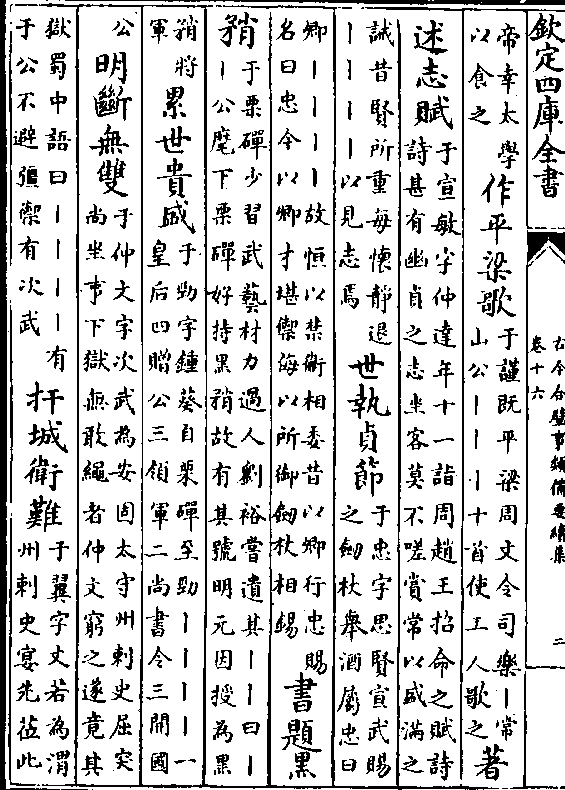 欽定四庫全書
古今合璧事類備要續集
卷十六
二
帝幸太學
以食之
作平梁歌
于謹既平梁周文令司樂丨常
山公丨丨丨十首使王人歌之
著
述志賦
于宣敏字仲達年十一詣周趙王招命之賦詩
詩甚有幽貞之志坐客莫不嗟賞常以盛滿之
誡昔賢所重每懷靜退
丨丨丨丨以見志焉
世執貞節
于忠字思賢宣武賜
之劒杖舉酒屬忠曰
卿丨丨丨丨故恒以禁衛相委昔以卿行忠賜
名曰忠今以卿才堪禦侮以所御劒杖相錫
書題黑
矟
于栗磾少習武藝材力過人劉裕嘗遺其丨丨曰丨
丨公麾下栗磾好持黑矟故有其號明元因授為黑
矟將
軍
累世貴盛
于勁字鍾葵自栗磾至勁丨丨丨丨一
皇后四贈公三領軍二尚書令三開國
公
明斷無雙
于仲文字次武為安固太守州刺史屈突
尚坐事下獄無敢繩者仲文窮之遂竟其
獄蜀中語曰丨丨丨丨有
于公不避彊禦有次武
扞城衛難
于翼字文若為渭
州刺史寔先蒞此